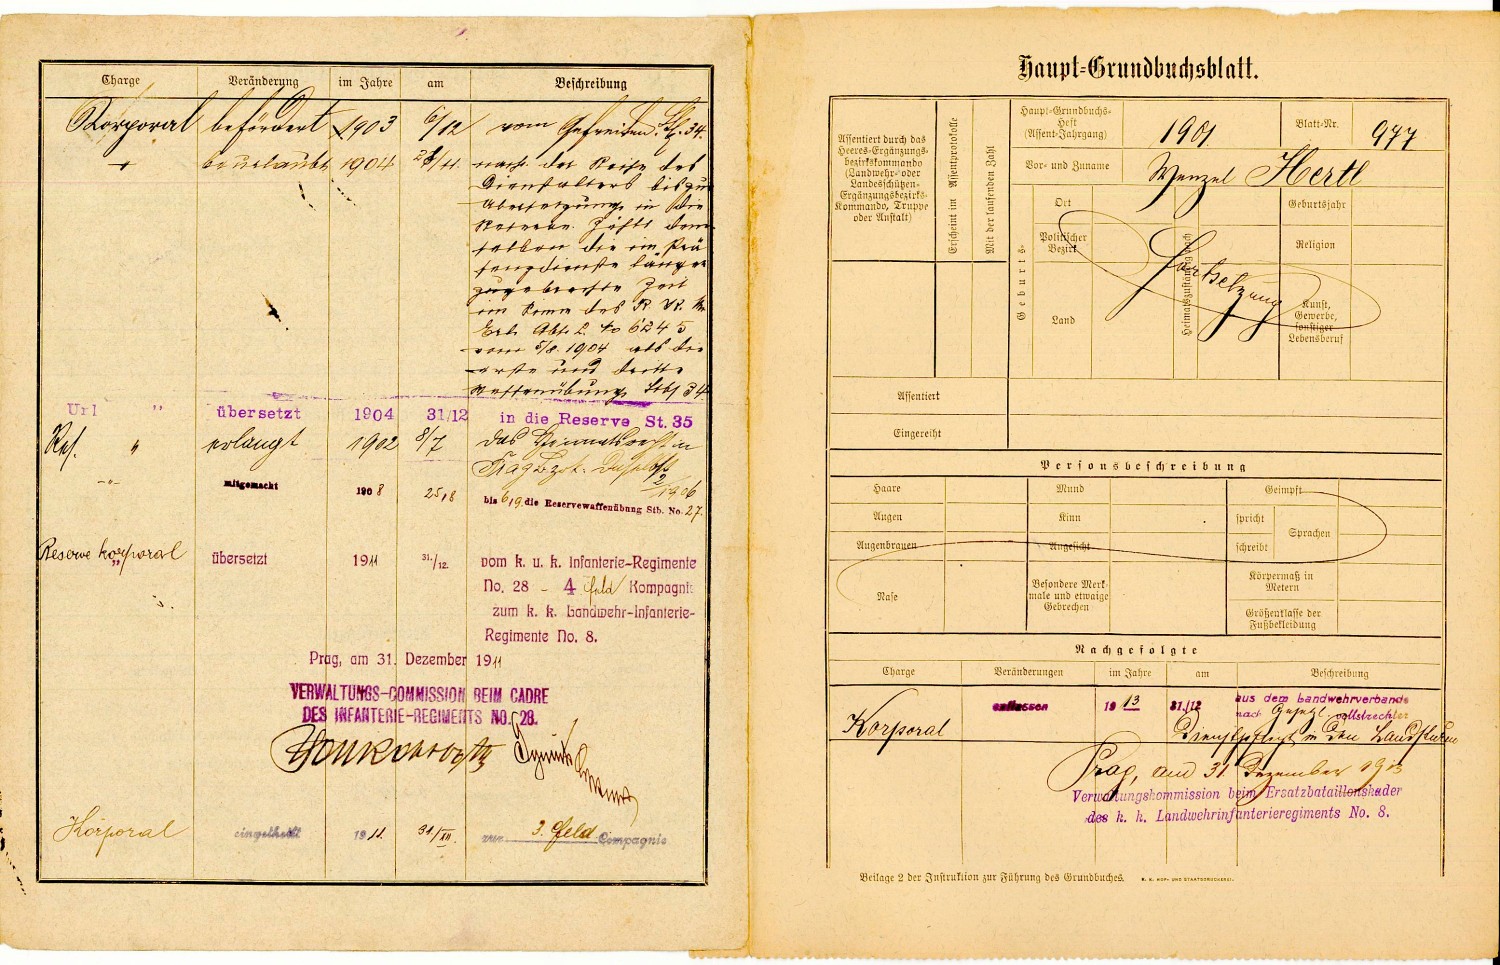 Charge Veränderung im Jahre am Beschreibung
Korporal befördert 1903 6/12 vom Gefreiten. 34.
beurlaubt 1904 nach der Reihe des
Dienstalters bis zur
Übersetzung in die
Reserve. Zählt dem-
selben die im Prä-
senzdienste länger
zugebrachte Zeit
im Sinne des R. K. M.
Erl. Abt. 2 No 6245
vom 5/8. 1904 als die
erste und dritte
Waffenübung 34
Url " übersetzt 1904 31/12 in die Reserve St. 35
Res. " erlangt 1902 8/7 das Heimatsrecht in
Prag
-"- mitgemacht 1908 25/8 bis 6/9. die Reservewaffenübung Stb. No. 27.
Reserve korporal übersetzt 1911 31./12. vom k. u. k. Infanterie-Regimente
No. 28 - 4 feld Kompagnie
zum k. k. Landwehr-Infanterie-
Regimente No. 8.
Prag, am 31. Dezember 1911
VERWALTUNGS-COMMISSION BEIM CADRE
DES INFANTERIE-REGIMENTS NO. 28.
Korporal eingetheilt 1911. 31./XII. zur 3. Feld Compagnie
Haupt-Grundbuchsblatt.
Assentiert durch das
Heeres-Ergänzungs-
bezirkskommando
(Landwehr- oder
Landesschützen-
Ergänzungsbezirks-
Kommando, Truppe
oder Anstalt)
Erscheint im Assentprotokolle
Mit der laufenden Zahl
Haupt-Grundbuchs-
Heft
(Assent-Jahrgang)
1901
Blatt-Nr.
977
Vor- und Zuname
Wenzel Hertl
Geburts-
Ort
Politischer
Bezirk
Land
Heimatszuständig nach
Fortsetzung
Geburtsjahr
Religion
Kunst,
Gewerbe,
sonstiger
Lebensberuf
Assentiert
Eingereiht
Personsbeschreibung
Haare Mund Geimpft
Augen Kinn spricht Sprachen
Augenbrauen Angesicht schreibt
Nase
Besondere Merk-
male und etwaige
Gebrechen
Körpermaß in
Metern
Größenklasse der
Fußbekleidung
Nachgefolgte
Charge Veränderungen im Jahre am Beschreibung
Korporal entlassen 1913 31./12 aus dem Landwehrverbande
nach Gesetzl. vollstreckter
Dienstpflicht in den Landsturm
Prag, am 31 Dezember 1913
Verwaltungskommission beim Ersatzbataillonskader
des k. k. Landwehrinfanterieregiments No. 8.
Beilage 2 der Instruktion zur Führung des Grundbuches. K. K. HOF- UND STAATSDRUCKEREI.